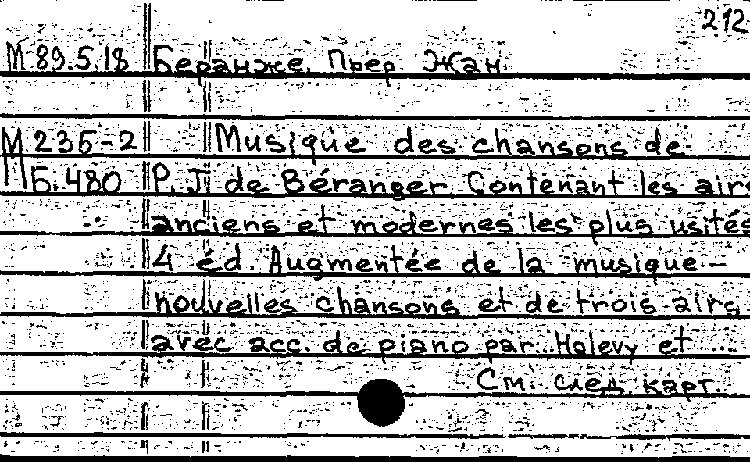 212
М 89.5.18 Беранже, Пьер Жан
М 235-2 Musique des chansons de
Б.480 P. J. de Béranger. Contenant les airs
anciens et modernes les plus usités
4 éd. Augmentée de la musique -
nouvelles chansons et de trois airs
avec acc. de piano par Halevy et ...
См. след. карт.